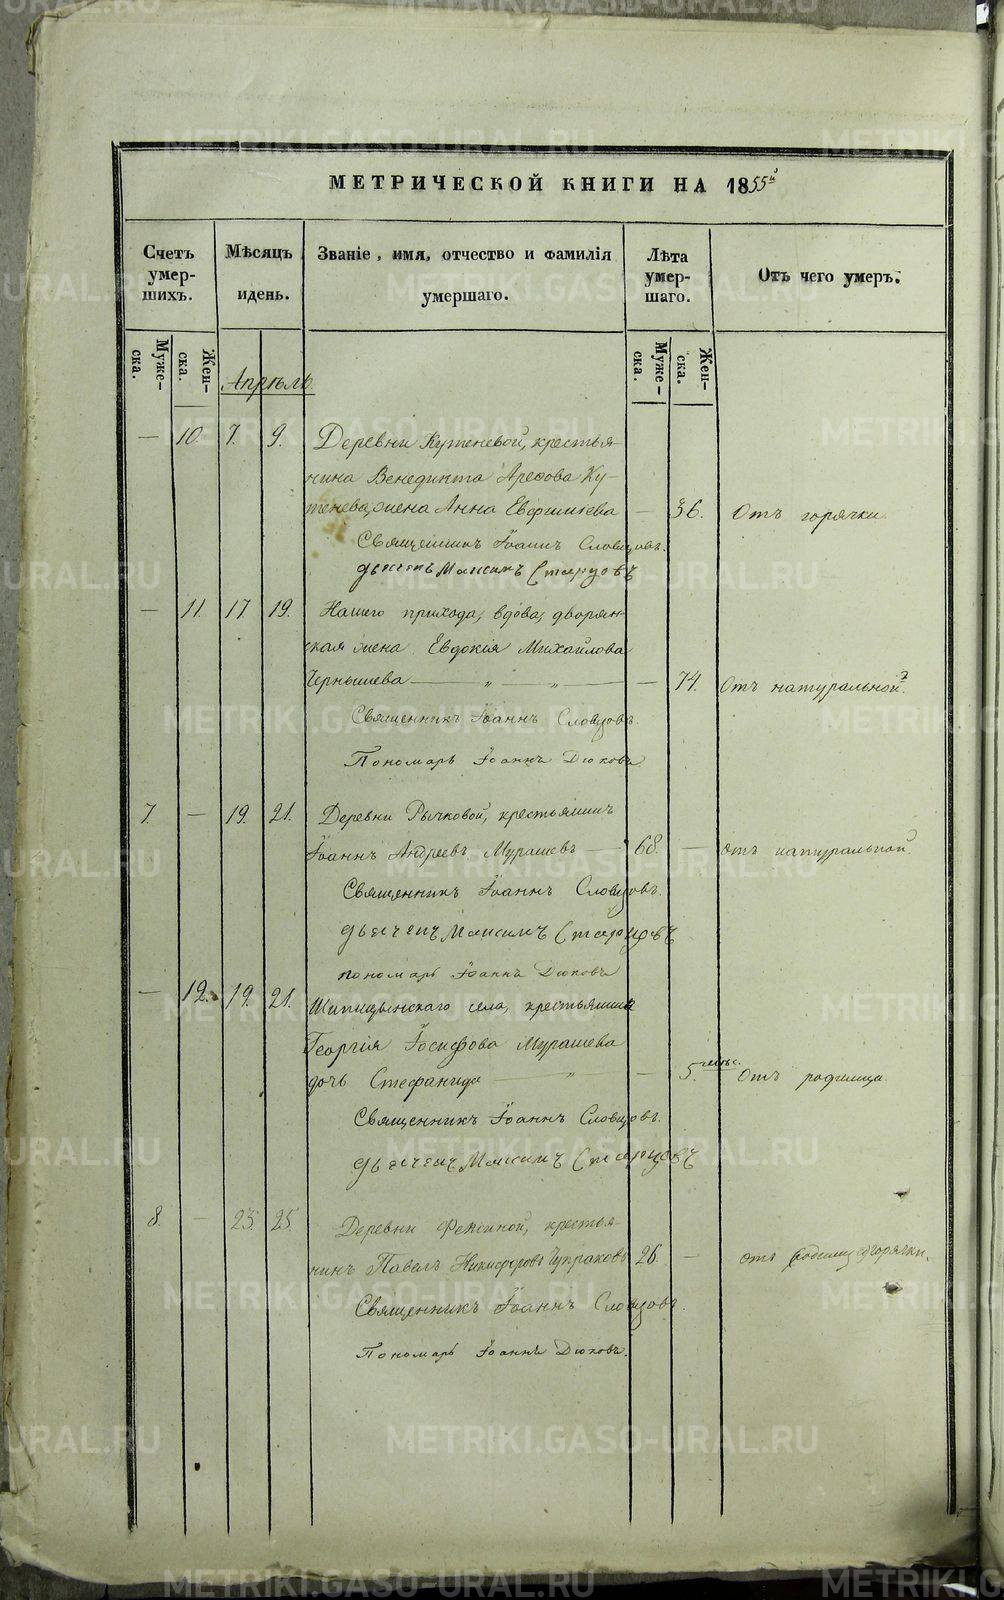 МЕТРИЧЕСКОЙ КНИГИ НА 1855й
Счетъ умер- шихъ.
Мѣсяцъ идень.
Званіе, имя, отчество и фамилія умершаго.
Лѣта умер- шаго.
Отъ чего умеръ.
Муже- ска.
Жен- ска.
Муже- ска.
Жен- ска.
Апрѣль.
— 10. 7. 9. Деревни Кутеневой, крестья-
нина Венедикта Арефова Ку-
тенева жена Анна Евфиміева — 36. Отъ горячки
Священникъ Іоаннъ Словцовъ.
дьячекъ Максимъ Старцовъ
— 11. 17 19. Нашего прихода, вдова, дворян-
ская жена Евдокія Михайлова
Чернышева — „ — „ — — 74. Отъ натуральной.
Священникъ Іоаннъ Словцовъ.
Пономарь Іоаннъ Дюковъ
7. — 19. 21. Деревни Рычковой, крестьянинъ
Іоаннъ Андреевъ Мурашевъ — 68. — отъ натуральной
Священникъ Іоаннъ Словцовъ.
дьячекъ Максимъ Старцовъ
пономарь Іоаннъ Дюковъ
— 12. 19. 21. Шипицынскаго села, крестьянина
Георгія Іосифова Мурашева
дочь Стефанида — „ — — 5. мѣс. Отъ родимца.
Священникъ Іоаннъ Словцовъ.
дьячекъ Максимъ Старцовъ
8. — 23. 25. Деревни крестья-
нинъ Павелъ Никифоровъ Чупраковъ 26. — отъ горячки.
Священникъ Іоаннъ Словцовъ.
Пономарь Іоаннъ Дюковъ.
METRIKI.GASO-URAL.RU